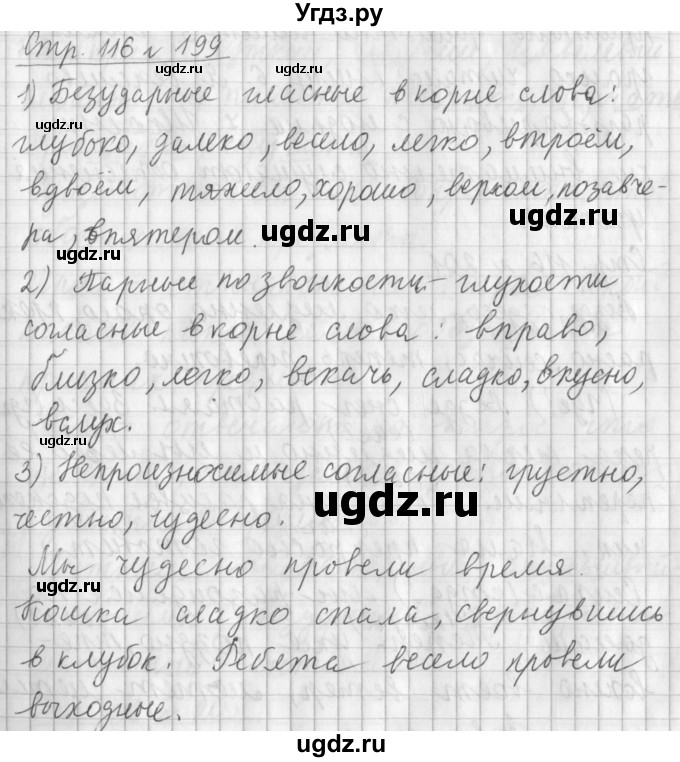 Угдз.ру
Стр. 116 № 199
ugdz.ru
1) Безударные гласные в корне слова:
ugdz.ru
глубоко, далеко, весело, легко, втроём,
вдвоём, тяжело, хорошо, верхом, позавче-
ugdz.ru
ра, впятером.
ugdz.ru
ugdz.ru
2) Парные по звонкости-глухости
согласные в корне слова: вправо,
близко, легко, вскачь, сладко, вкусно,
вслух.
ugdz.ru
3) Непроизносимые согласные: грустно,
ugdz.ru
честно, чудесно.
Мы чудесно провели время.
ugdz.ru
Кошка сладко спала, свернувшись
в клубок. Ребята весело провели
выходные.
ugdz.ru
ugdz.ru